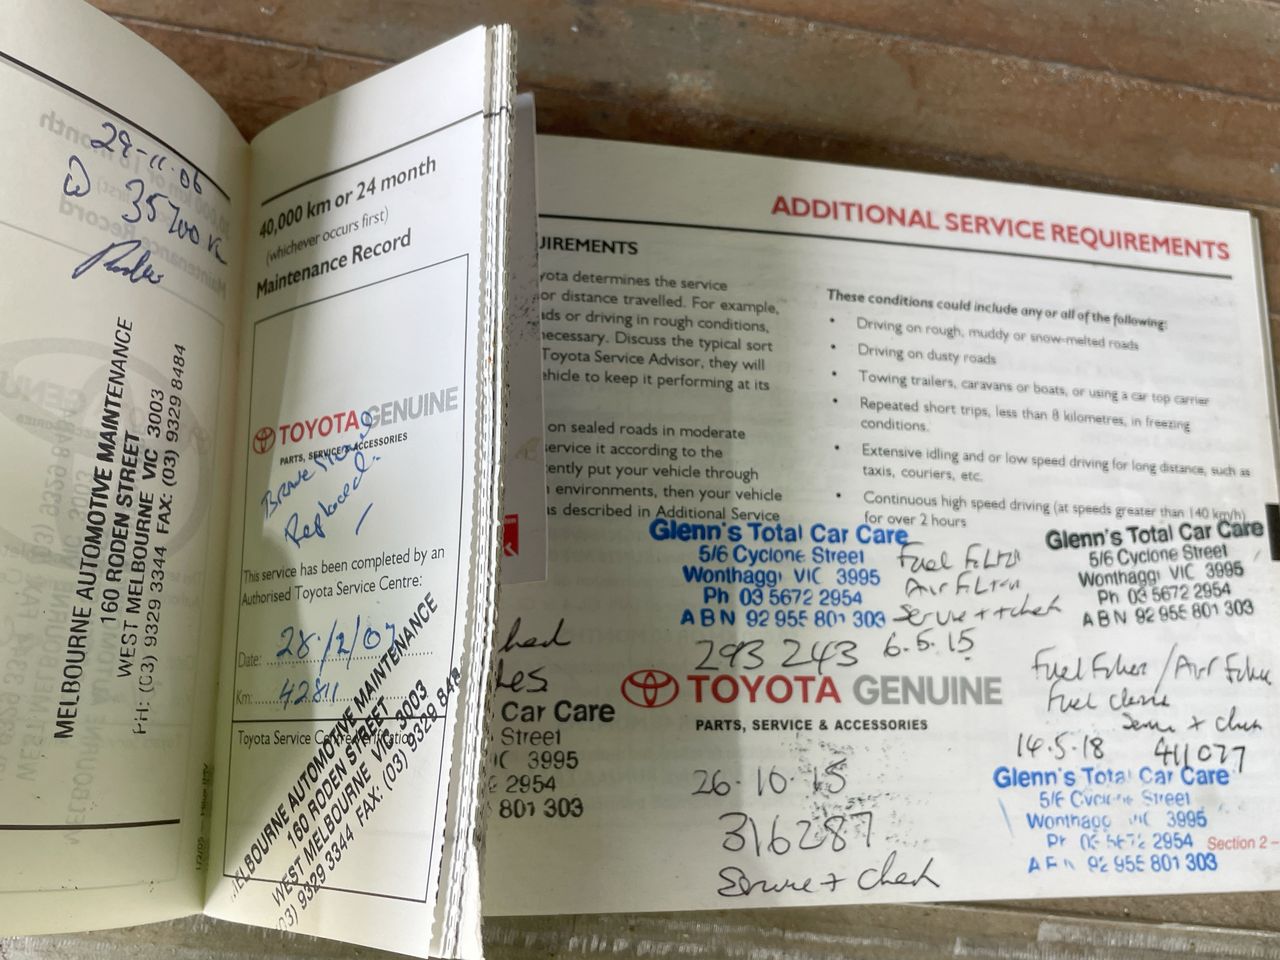 29-11-06
@ 35700 K
MELBOURNE AUTOMOTIVE MAINTENANCE
160 RODEN STREET
WEST MELBOURNE VIC 3003
PH: (03) 9329 3344 FAX: (03) 9329 8484
40,000 km or 24 month
(whichever occurs first)
Maintenance Record
TOYOTA GENUINE
PARTS, SERVICE & ACCESSORIES
Replaced.
This service has been completed by an
Authorised Toyota Service Centre:
Date: 28/2/07
Km: 42811
Toyota Service Centre verification
MELBOURNE AUTOMOTIVE MAINTENANCE
160 RODEN STREET
WEST MELBOURNE VIC 3003
(03) 9329 3344 FAX: (03) 9329 848
ADDITIONAL SERVICE REQUIREMENTS
UIREMENTS
yota determines the service
or distance travelled. For example,
ds or driving in rough conditions,
ecessary. Discuss the typical sort
Toyota Service Advisor, they will
ehicle to keep it performing at its
on sealed roads in moderate
ervice it according to the
ently put your vehicle through
environments, then your vehicle
as described in Additional Service
These conditions could include any or all of the following:
• Driving on rough, muddy or snow-melted roads
• Driving on dusty roads
• Towing trailers, caravans or boats, or using a car top carrier
• Repeated short trips, less than 8 kilometres, in freezing
conditions.
• Extensive idling and/or low speed driving for long distance, such as
taxis, couriers, etc.
• Continuous high speed driving (at speeds greater than 140 km/h)
for over 2 hours
Glenn's Total Car Care
5/6 Cyclone Street
Wonthaggi VIC 3995
Ph 03 5672 2954
A B N 92 955 801 303
Fuel Filter
Air Filter
Service + check
293 243 6.5.15
Glenn's Total Car Care
5/6 Cyclone Street
Wonthaggi VIC 3995
Ph 03 5672 2954
A B N 92 955 801 303
Car Care
Street
C 3995
2954
801 303
TOYOTA GENUINE
PARTS, SERVICE & ACCESSORIES
26-10-15
316287
Service + Check
Fuel Filter / Air Filter
Fuel
Service + check
14.5.18 411077
Glenn's Total Car Care
5/6 Cyclone Street
Wonthaggi VIC 3995
Ph 03 5672 2954
A B N 92 955 801 303
Section 2 –